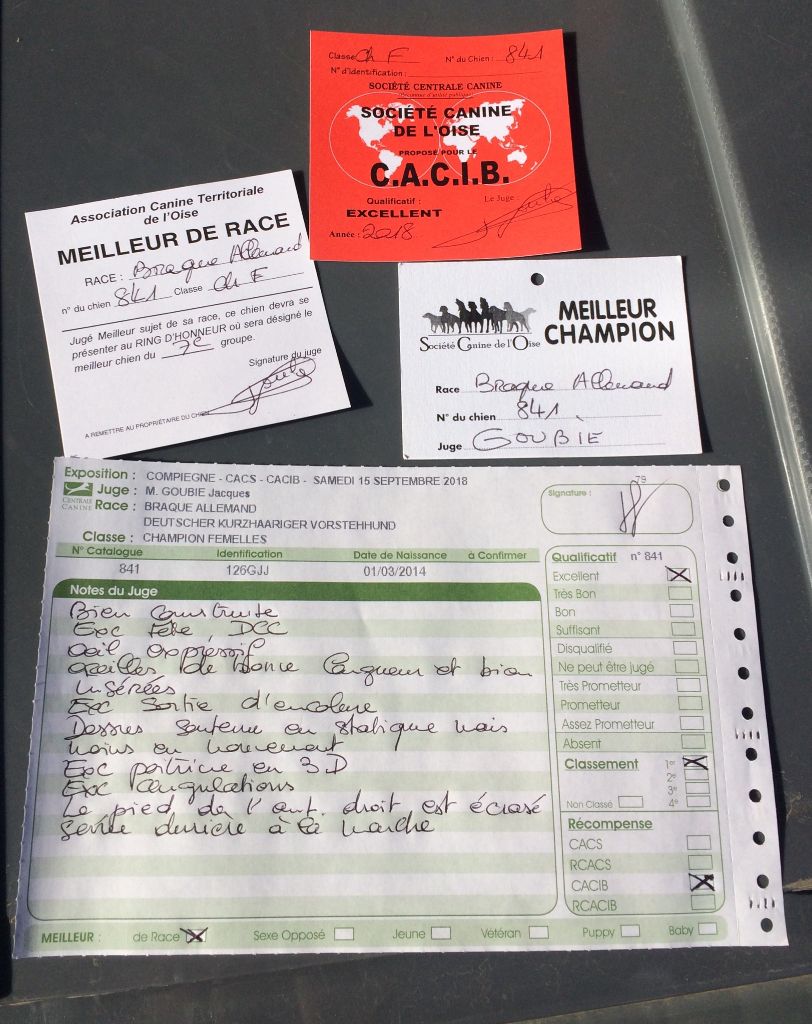 Classe Ch F N° du Chien : 841
N° d'Identification :
SOCIÉTÉ CENTRALE CANINE
SOCIÉTÉ CANINE
DE L'OISE
PROPOSÉ POUR LE
C.A.C.I.B.
Qualificatif : Le Juge
EXCELLENT
Année : 2018
Association Canine Territoriale
de l'Oise
MEILLEUR DE RACE
RACE : Braque Allemand
n° du chien 841 Classe Ch F
Jugé Meilleur sujet de sa race, ce chien devra se
présenter au RING D'HONNEUR où sera désigné le
meilleur chien du 7e groupe.
Signature du juge
A REMETTRE AU PROPRIÉTAIRE DU CHIEN
MEILLEUR
CHAMPION
Société Canine de l'Oise
Race Braque Allemand
N° du chien 841
Juge GOUBIE
Exposition : COMPIEGNE - CACS - CACIB - SAMEDI 15 SEPTEMBRE 2018
79
CENTRALE
CANINE
Juge : M. GOUBIE Jacques
Signature :
Race : BRAQUE ALLEMAND
DEUTSCHER KURZHAARIGER VORSTEHHUND
Classe : CHAMPION FEMELLES
N° Catalogue Identification Date de Naissance à Confirmer
841 126GJJ 01/03/2014
Notes du Juge
Bien construite
Exc tête, DCC
oeil expressif
oreilles de bonne longueur et bien
insérées
Exc sortie d'encolure
Dessus soutenu en statique mais
moins en mouvement
Exc poitrine en 3D
Exc angulations
Le pied de l'ant. droit est écrasé
serrée derrière à la marche
Qualificatif n° 841
Excellent
Très Bon
Bon
Suffisant
Disqualifié
Ne peut être jugé
Très Prometteur
Prometteur
Assez Prometteur
Absent
Classement 1er
2e
3e
Non Classé 4e
Récompense
CACS
RCACS
CACIB
RCACIB
MEILLEUR : de Race Sexe Opposé Jeune Vétéran Puppy Baby